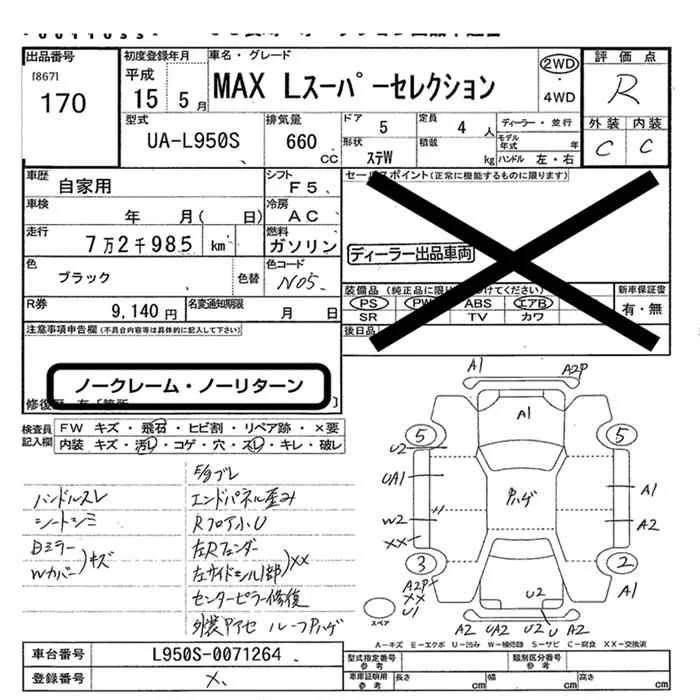 出品番号
[867]
170
初度登録年月
平成
15 5月
車名・グレード
MAX Lスーパーセレクション
2WD
・
4WD
評価点
R
外装 内装
C C
型式
UA-L950S
排気量
660
CC
ドア
5
定員
4 人
形状
ステW
積載
kg
ディーラー・並行
モデル
年式 年
ハンドル 左・右
車歴
自家用
シフト
F5
車検
年 月( 日)
冷房
AC
走行
7万2千985 km
燃料
ガソリン
色
ブラック
色替
色コード
N05
R券
9,140円
名変通知期限
月 日
セールスポイント(正常に機能するものに限ります)
ディーラー出品車両
PS PW ABS エアB
SR TV カワ
後日品
新車保証書
有・無
注意事項申告欄(不具合内容等は具体的に記入して下さい)
ノークレーム・ノーリターン
検査員
記入欄
FW キズ・飛石・ヒビ割・リペア跡・×要
内装 キズ・汚レ・コゲ・穴・スレ・キレ・破レ
ハンドルスレ
シートシミ
Bミラー
Wカバー)キズ
E/gブレ
エンドパネル歪み
Rフロア小U
左Rフェンダー
左サイドシル1部)××
センターピラー修復
外装Pアセ ルーフPハゲ
A1 A2P
A1
5 5
U2
UA1
A1
Pハゲ
W2
A2
××
3 2
A2P
××
U1
A1
U2
スペア
A2 UA2 U2 U A2
A=キズ E=エクボ U=凹み W=補修跡 S=サビ C=腐食 XX=交換済
車台番号
L950S-0071264
登録番号
×
型式指定番号
参考
類別区分番号
参考
車庫証明用
参考
長さ cm
幅 cm
高さ cm